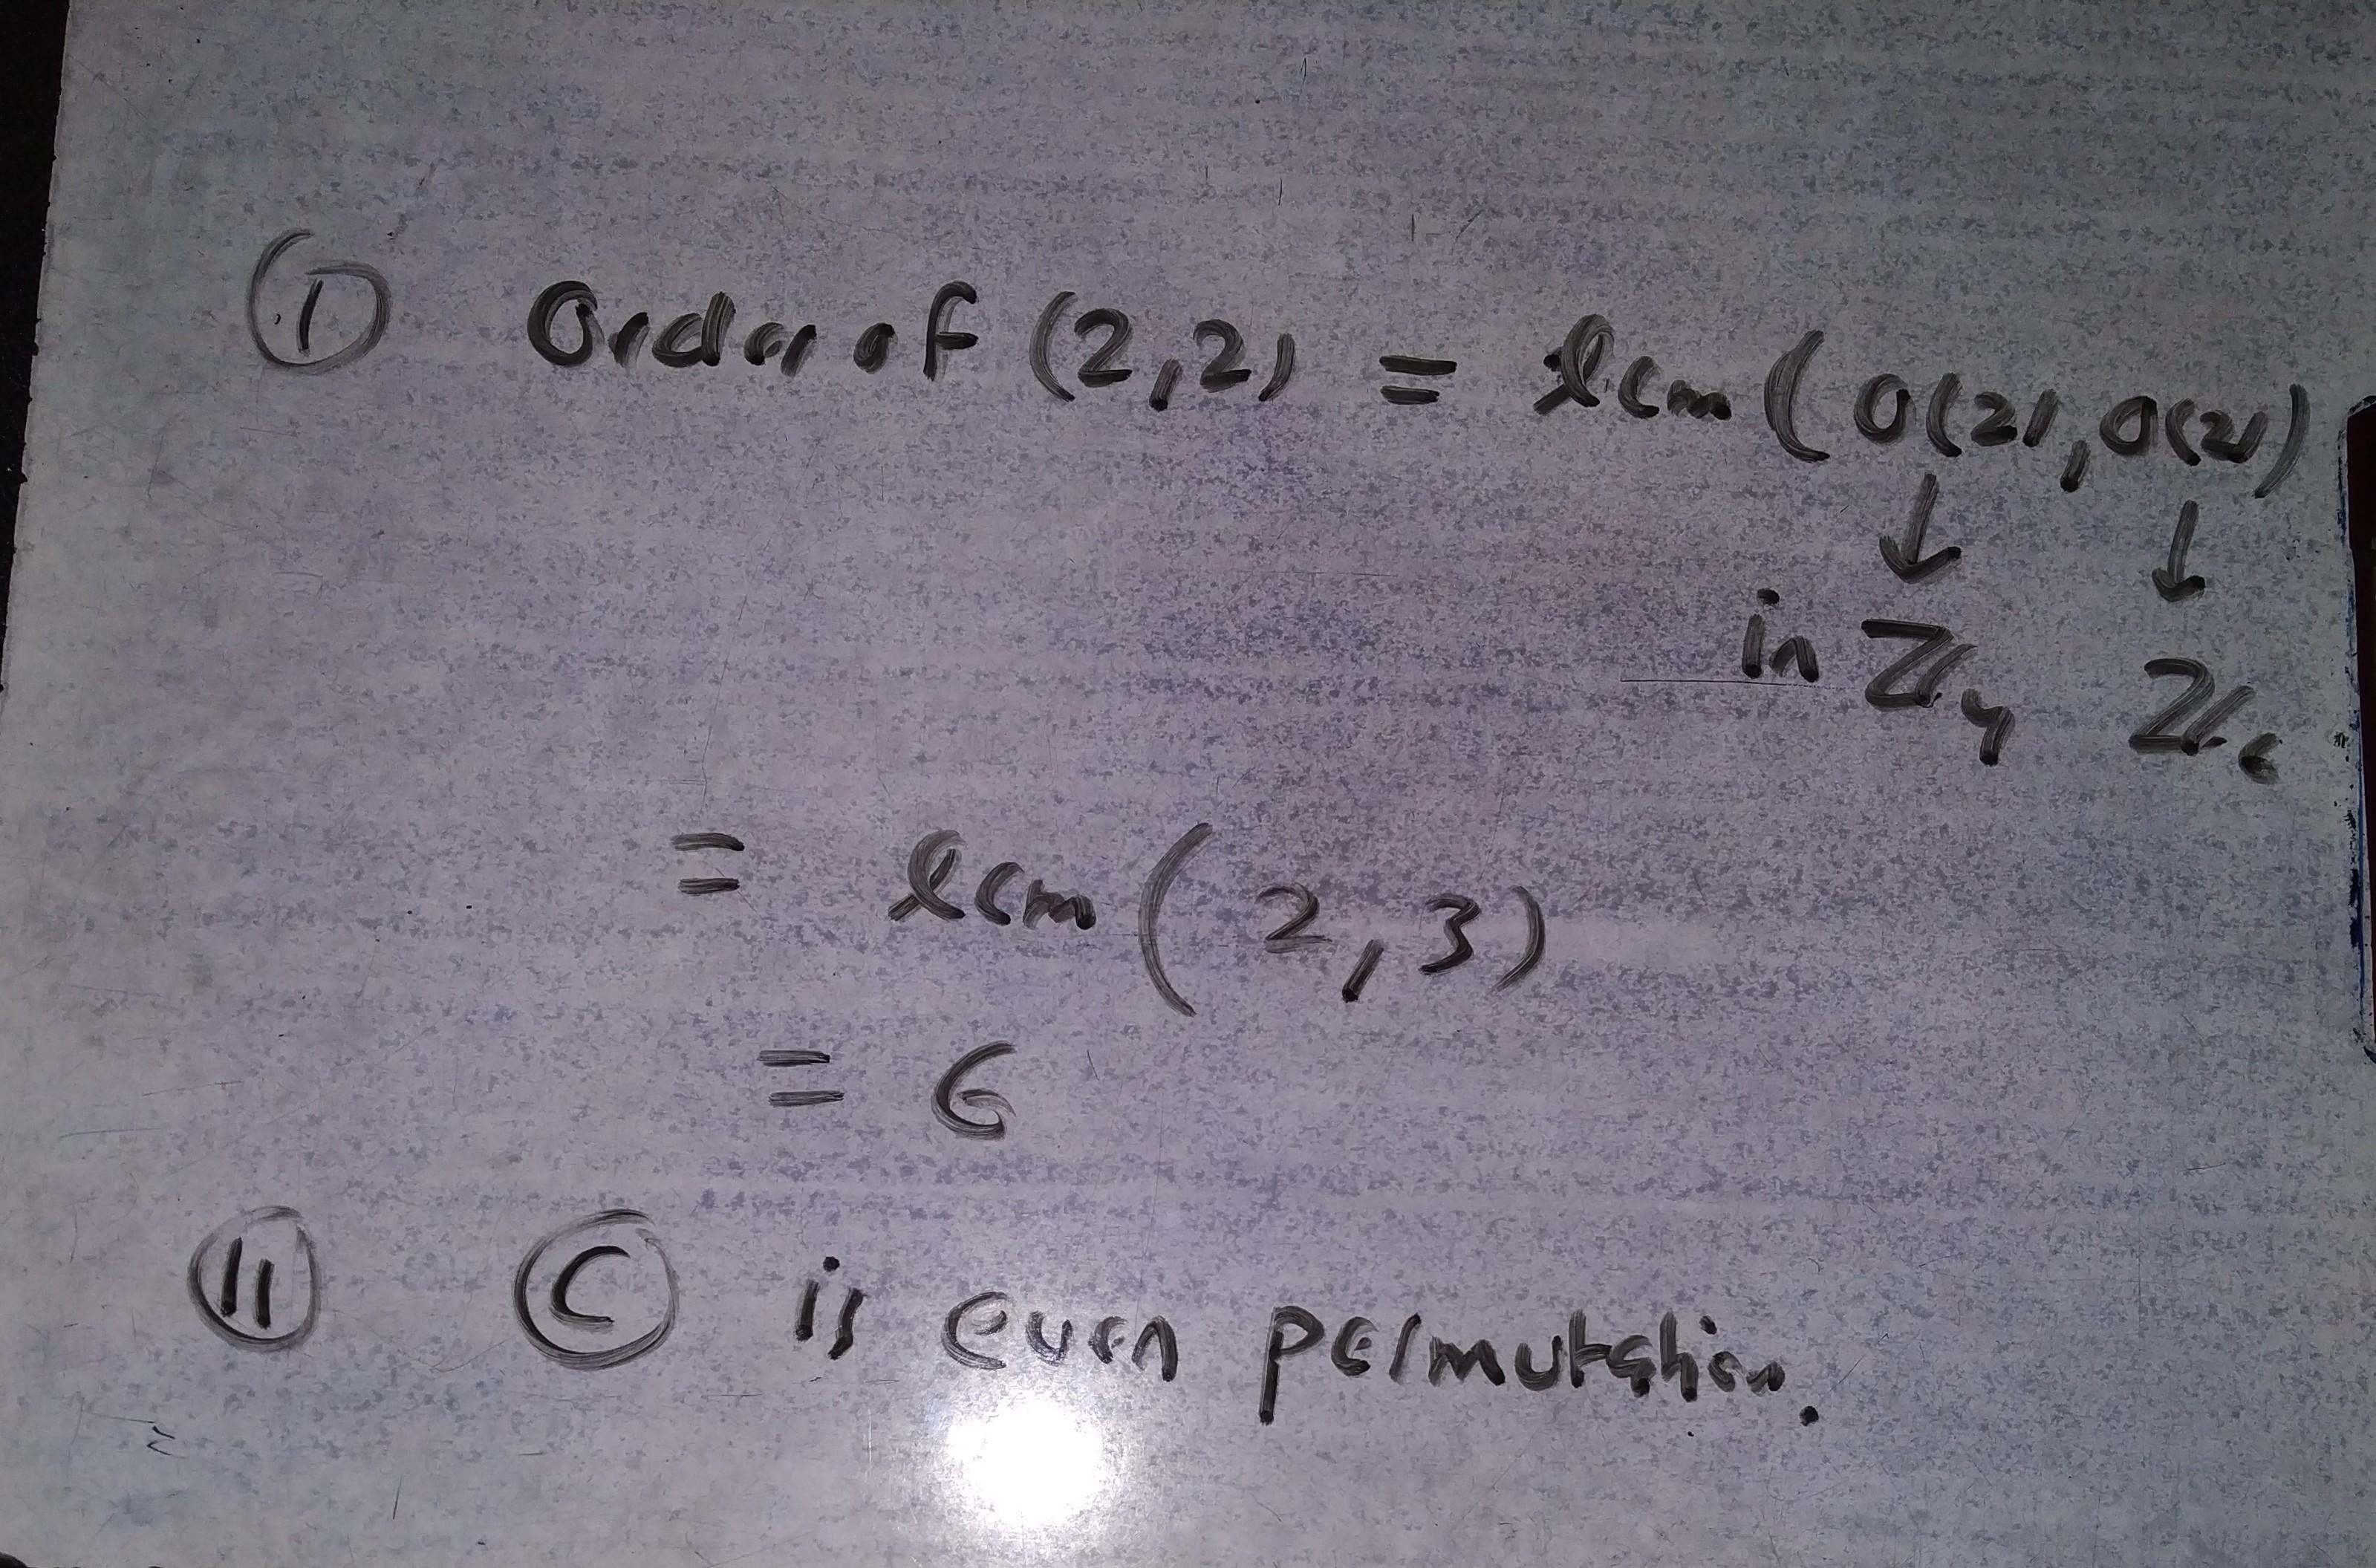 ① Order of (2,2) = lcm ( O(2), O(2) )
↓ ↓
in ℤ₄ ℤ₆
= lcm ( 2, 3 )
= 6
⑪ Ⓒ is even permutation.